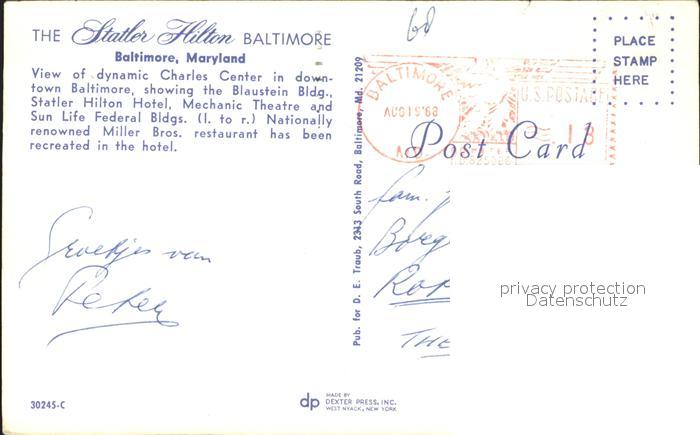 60
THE Statler Hilton BALTIMORE
Baltimore, Maryland
View of dynamic Charles Center in down-
town Baltimore, showing the Blaustein Bldg.,
Statler Hilton Hotel, Mechanic Theatre and
Sun Life Federal Bldgs. (l. to r.) Nationally
renowned Miller Bros. restaurant has been
recreated in the hotel.
Groetjes van
Peter
30245-C
Pub. for D. E. Traub, 2343 South Road, Baltimore, Md. 21209
dp
MADE BY
DEXTER PRESS, INC.
WEST NYACK, NEW YORK
BALTIMORE
AUG 15'68
U.S. POSTAGE
.13
PLACE
STAMP
HERE
Post Card
fam.
Borg
THE
privacy protection
Datenschutz